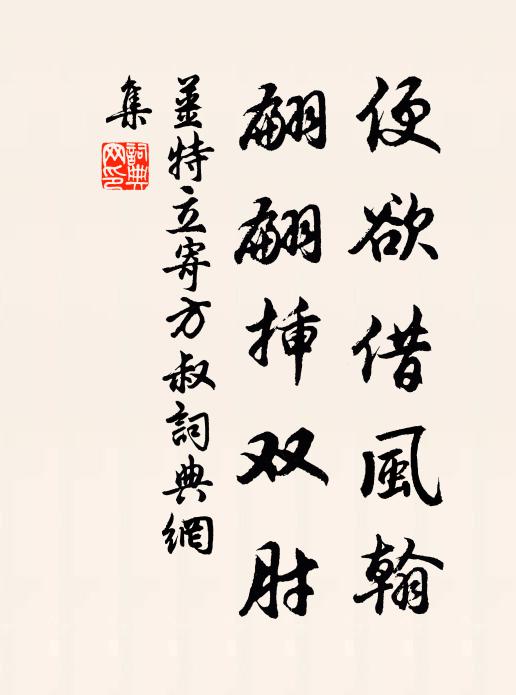 便欲借風翰
翩翩挿双肘
姜特立寄方叔詞典網
集
詞典网印